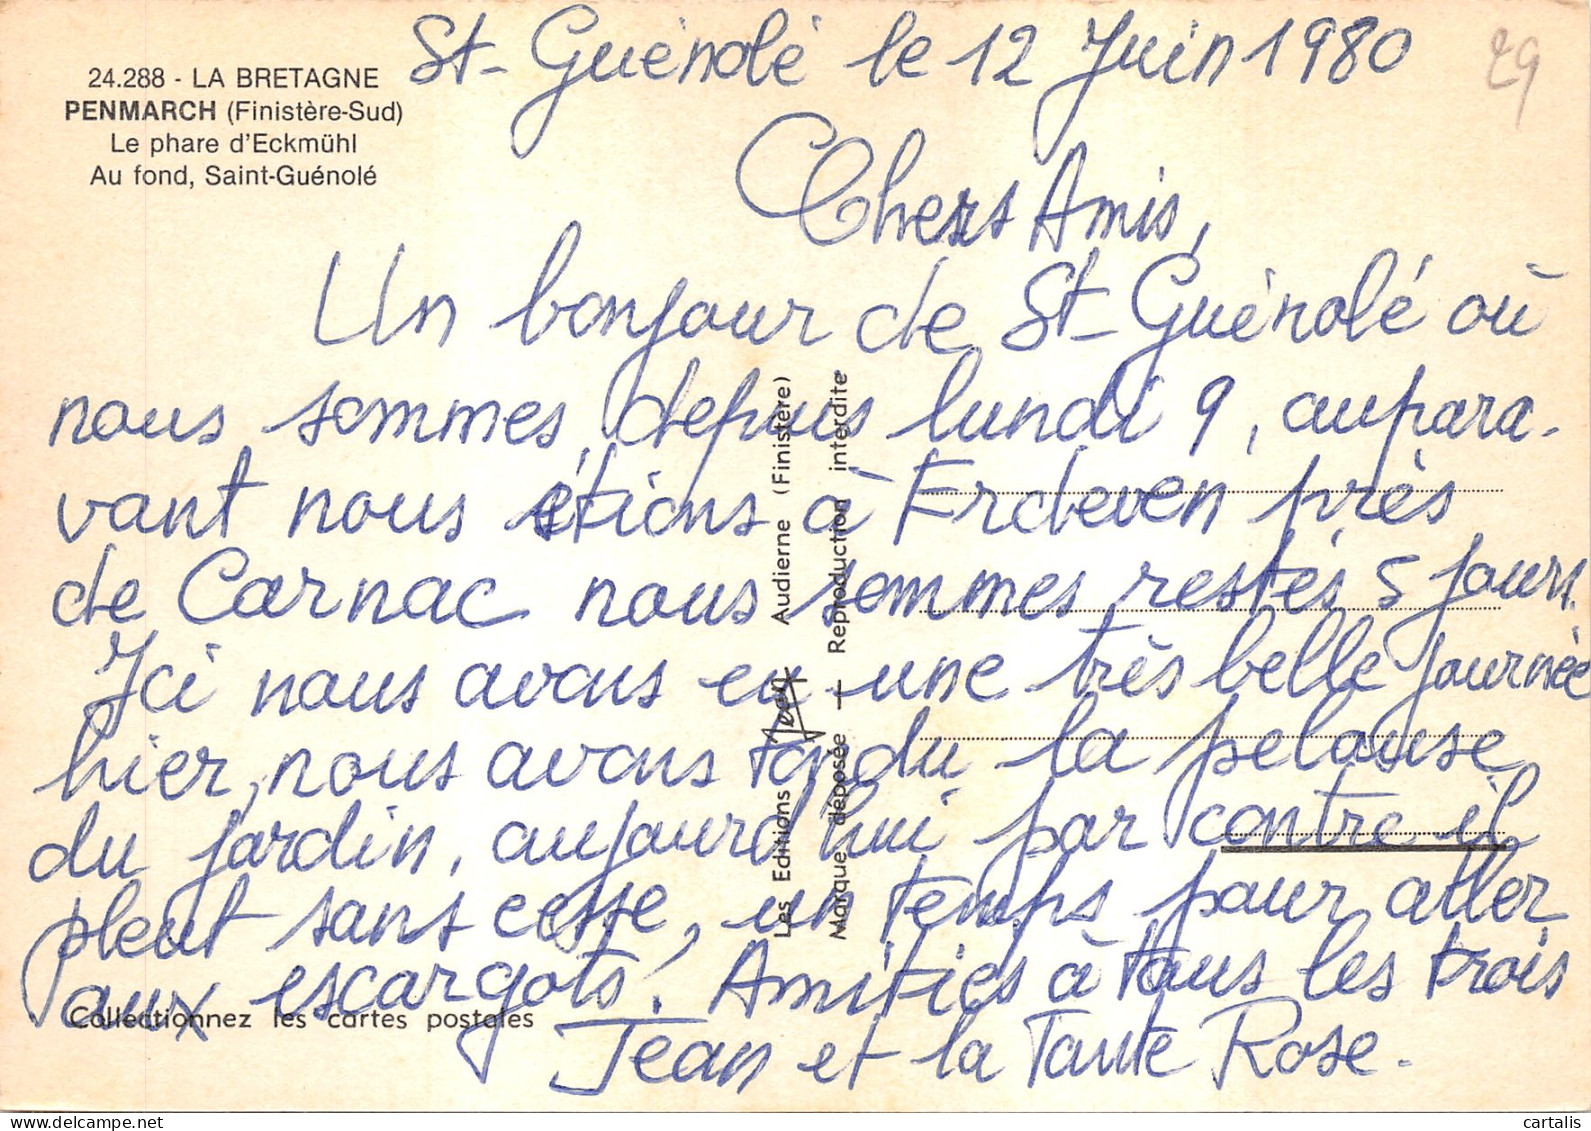 St-Guénolé le 12 Juin 1980
29
24.288 - LA BRETAGNE
PENMARCH (Finistère-Sud)
Le phare d'Eckmühl
Au fond, Saint-Guénolé
Chers Amis,
Un bonjour de St-Guénolé où
nous sommes depuis lundi 9, aupara-
vant nous étions à Erdeven près
de Carnac nous sommes restés 5 jours.
Ici nous avons eu une très belle journée
hier, nous avons tondu la pelouse
du jardin, aujourd'hui par contre il
pleut sans cesse, un temps pour aller
aux escargots! Amitiés à tous les trois
Jean et la Tante Rose.
Les Editions Jean Audierne (Finistère)
Marque déposée — Reproduction interdite
Collectionnez les cartes postales
cartalis
www.delcampe.net